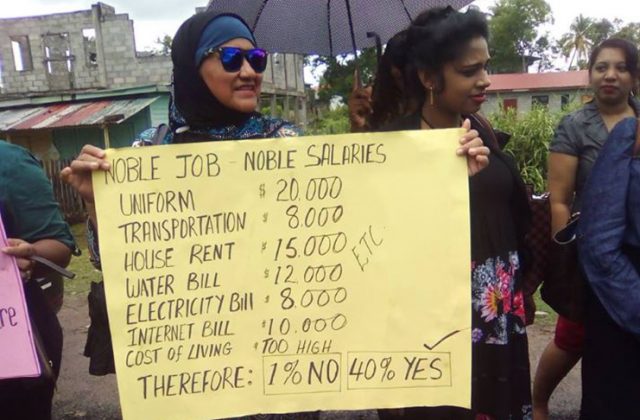 NOBLE JOB - NOBLE SALARIES
UNIFORM $ 20.000
TRANSPORTATION $ 8.000
HOUSE RENT $ 15.000
WATER BILL $ 12.000
ELECTRICITY Bill $ 8.000
INTERNET BILL $ 10.000
COST OF LIVING $ TOO HIGH
ETC.
THEREFORE: 1% NO 40% YES
re